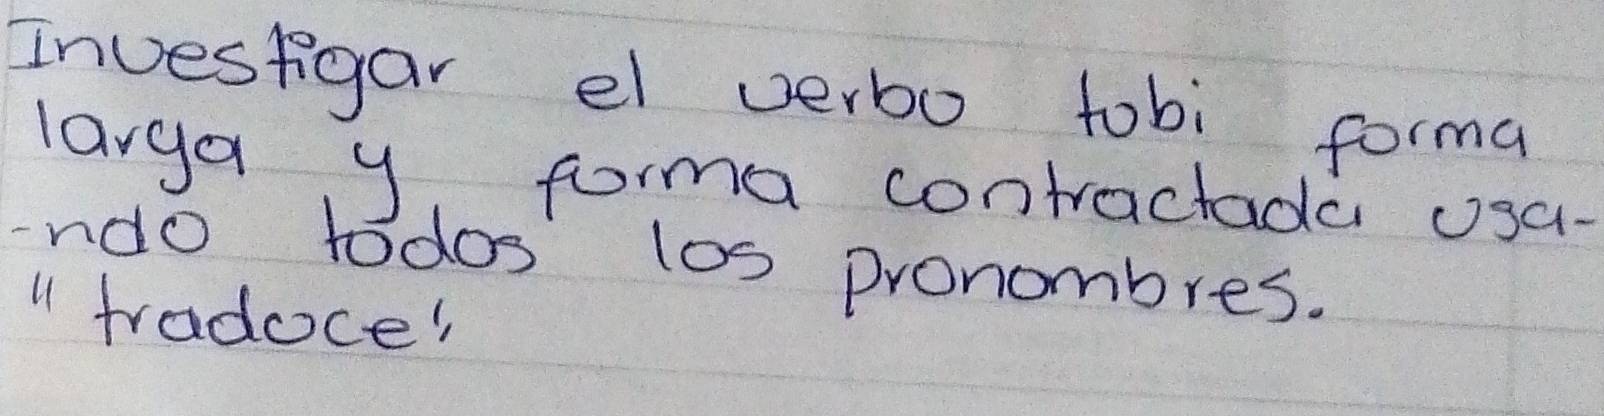 Investigar el verbo tobi forma
larga y forma contractada usa-
-ndo todos los pronombres.
"traduce"